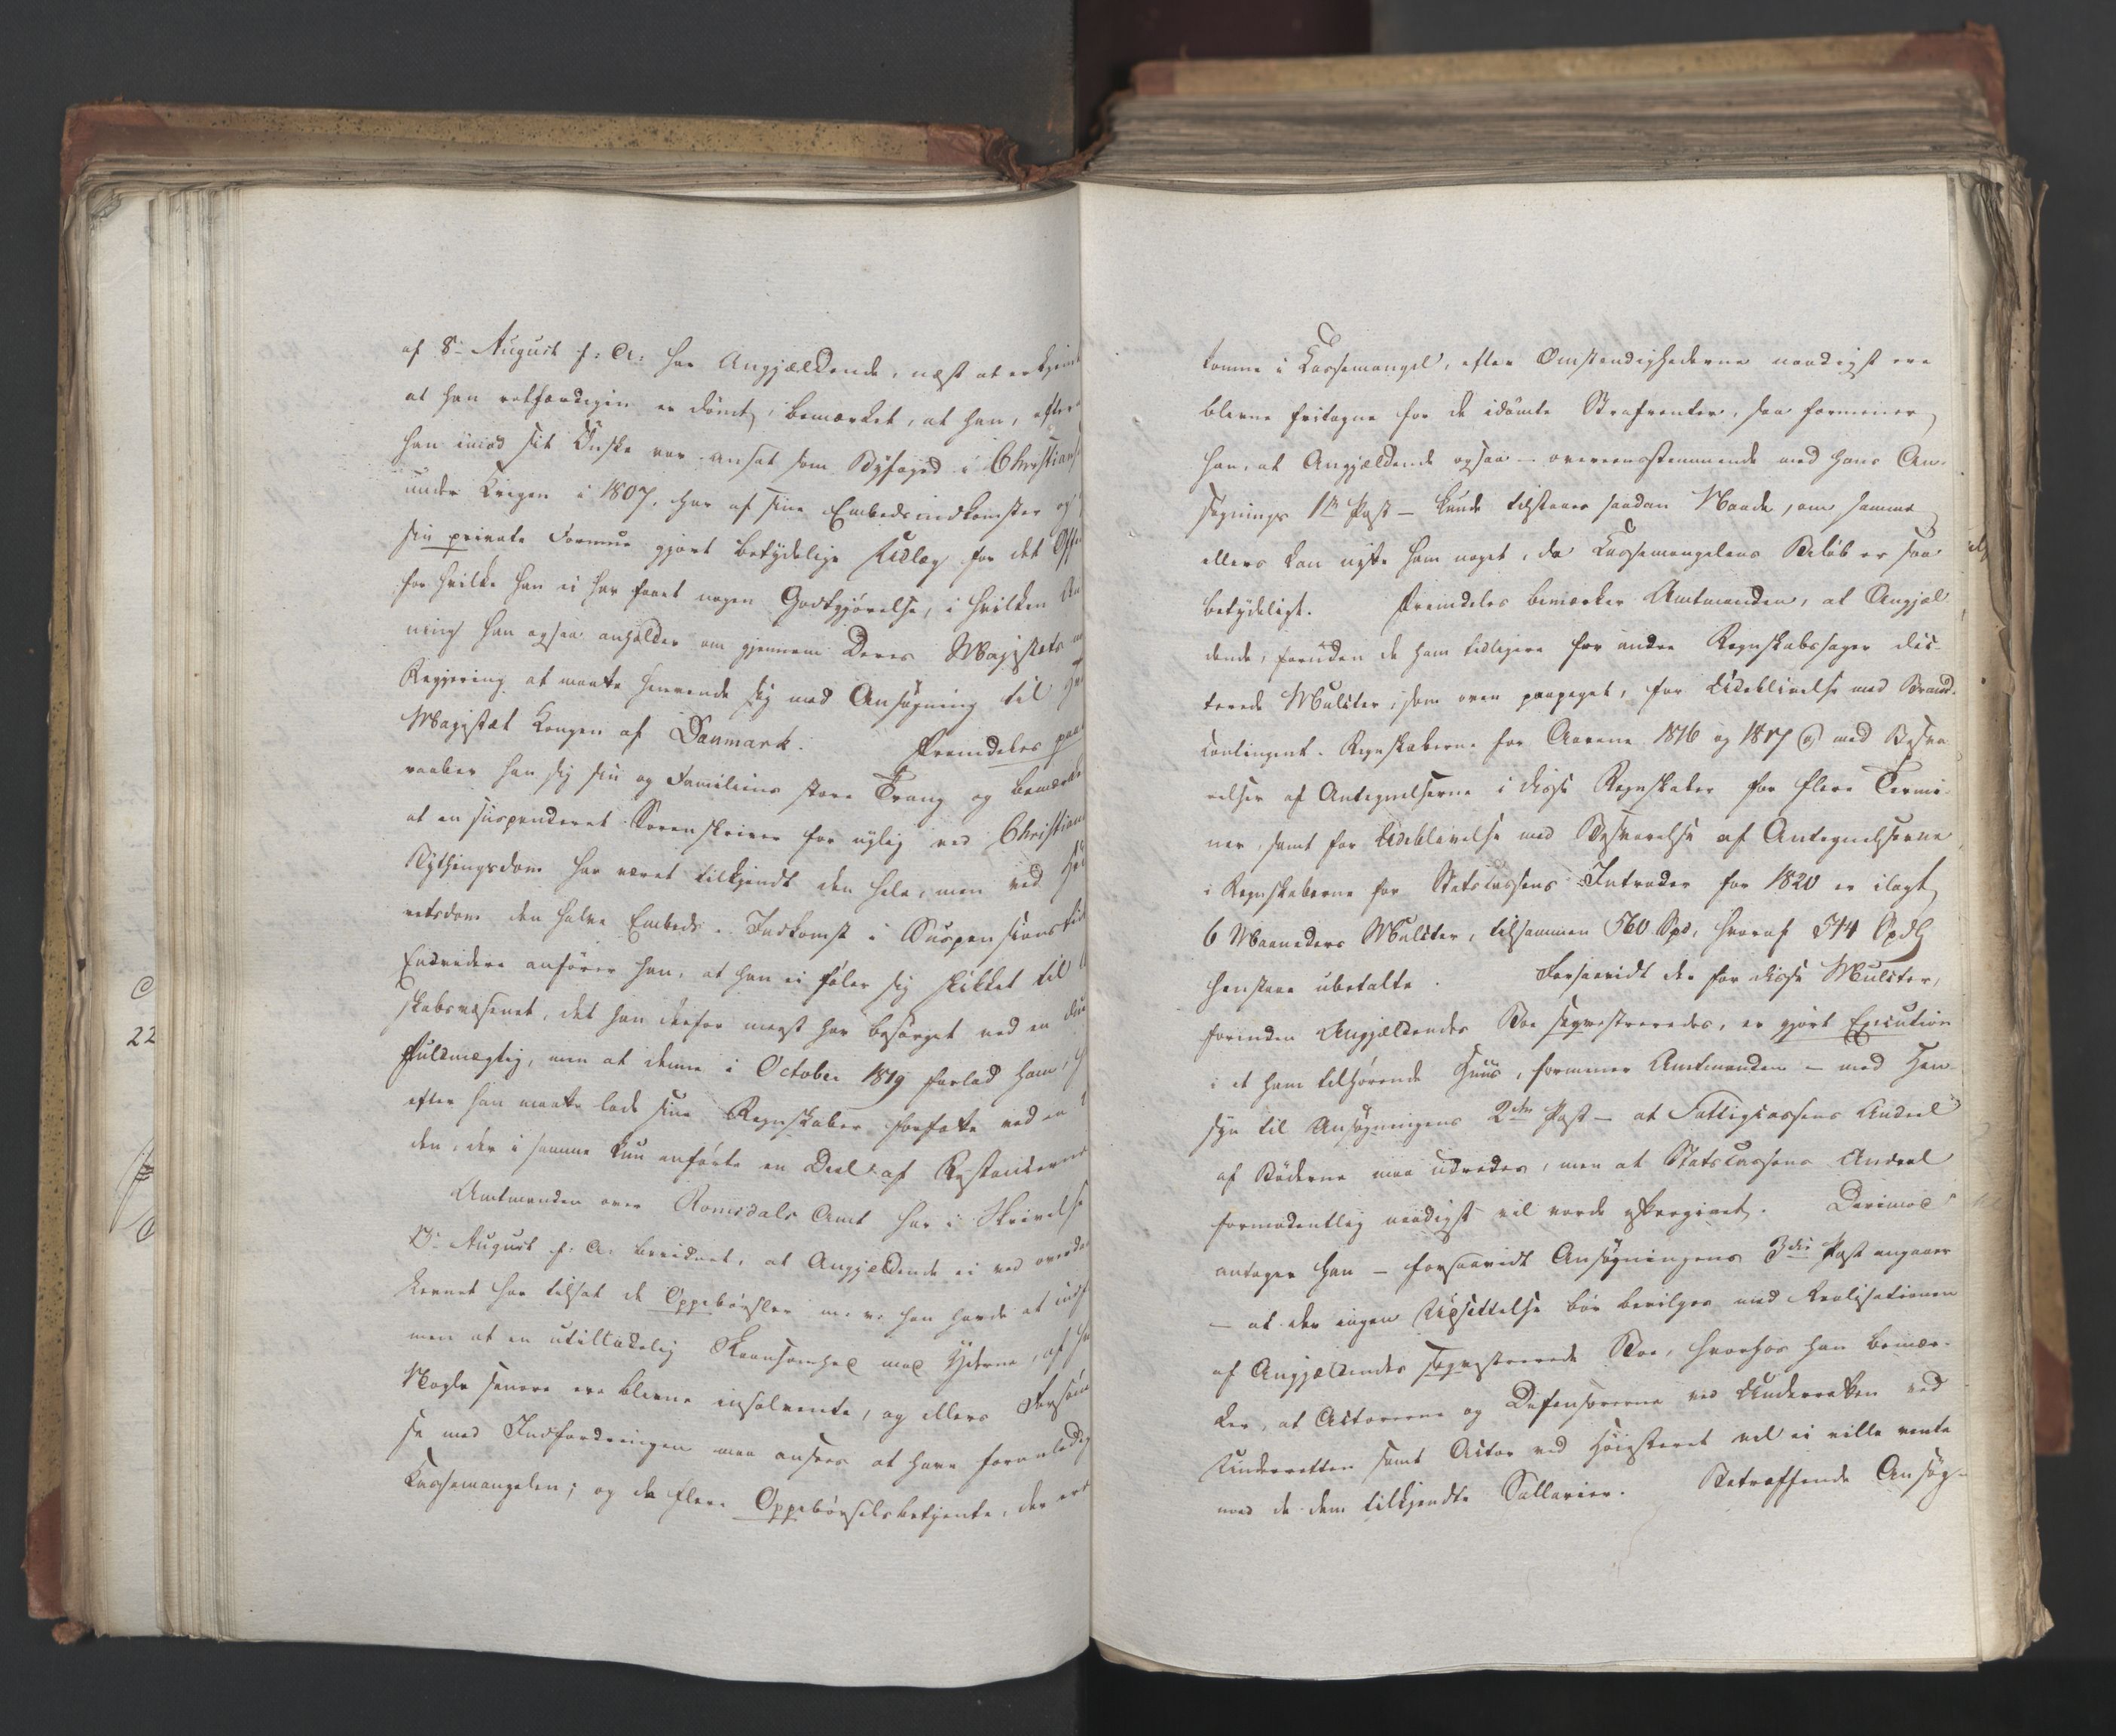 af 8de August f: A: har Angjældende, næst at erkjende
at han retfærdigen er dømt, bemærket, at han, efterat
han imod sit Ønske var ansat som Byfoged i Christians
under Krigen i 1807, har af sine Embedsindkomster og
sin private Formue gjort betydelige Udlæg for det Off
for hvilke han ei har faaet nogen Godtgjørelse, i hvilken
ning han ogsaa anholder om gjennem Deres Majestæts
Regjering at maatte henvende sig med Ansøgning til
Majestæt Kongen af Danmark. Fremdeles paa
raaber han sig sin og Familiens store Trang og bemærker
at en suspenderet Sorenskriver for nylig ved Christians
Stiftsoverretsdom har været tilkjendt den hele, men ved Høi
retsdom den halve Embeds-Indkomst i Suspensionstid
Endvidere anfører han, at han ei føler sig skikket til
skabsvæsenet, det han derfor meest har besørget ved en
Fuldmægtig, men at denne i October 1819 forlod ham,
efter han maatte lade sine Regnskaber forfatte ved en
den, der i samme kun anførte en Deel af Restancerne
Amtmanden over Romsdals Amt har i Skrivelse
13de August f: A: bevidnet, at Angjældende ei ved
levnet har tilsat de Oppebørsler m. v. han havde at ind
men at en utilladelig Skaansomhed mod Yderne, af
Nogle senere ere blevne insolvente, og ellers Forsøm
se med Indfordringen maa ansees at have foranlediget
Kassemangelen; og da flere Oppebørselsbetjente, der ere
komne i Kassemangel, efter Omstændighederne naadigst ere
blevne fritagne for de idømte Strafrenter, saa formener
han, at Angjældende ogsaa – overeensstemmende med hans An-
søgnings 1ste Post – kunde tilstaaes saadan Naade, om samme
ellers kan nytte ham noget, da Kassemangelens Beløb er saa
betydeligt. Fremdeles bemærker Amtmanden, at Angjæl
dende, foruden de ham tidligere for andre Regnskabssager dic-
terede Mulcter, som oven paapeget, for Udeblivelse med Brand-
contingent-Regnskaberne for Aarene 1816 og 1817 og med Besva
relser af Antegnelserne i disse Regnskaber for flere Termi-
ner, samt for Udeblivelse med Besvarelse af Antegnelserne
i Regnskaberne for Statscassens Intrader for 1820 er ilagt
6 Maaneders Mulcter, tilsammen 560 Spd, hvoraf 344 Spd
henstaae ubetalte. Forsaavidt der for disse Mulcter,
forinden Angjældendes Boe seqvestreredes, er gjort Execution
i et ham tilhørende Huus, formener Amtmanden – med Hen-
syn til Ansøgningens 2den Post – at Fattigcassens Andeel
af Bøderne maa udredes, men at Statscassens Andeel
formodentlig naadigst vil vorde eftergivet. Derimod
antager han – forsaavidt Ansøgningens 3die Post angaaer
– at der ingen Udsættelse bør bevilges med Realisationen
af Angjældendes seqvestrerede Boe, hvorhos han bemær-
ker, at Actorerne og Defensorerne ved Underretten ved
Underretten samt Actor ved Høiesteret vel ei ville vente
med de dem tilkjendte Sallarier. Betræffende Ansøg-
22